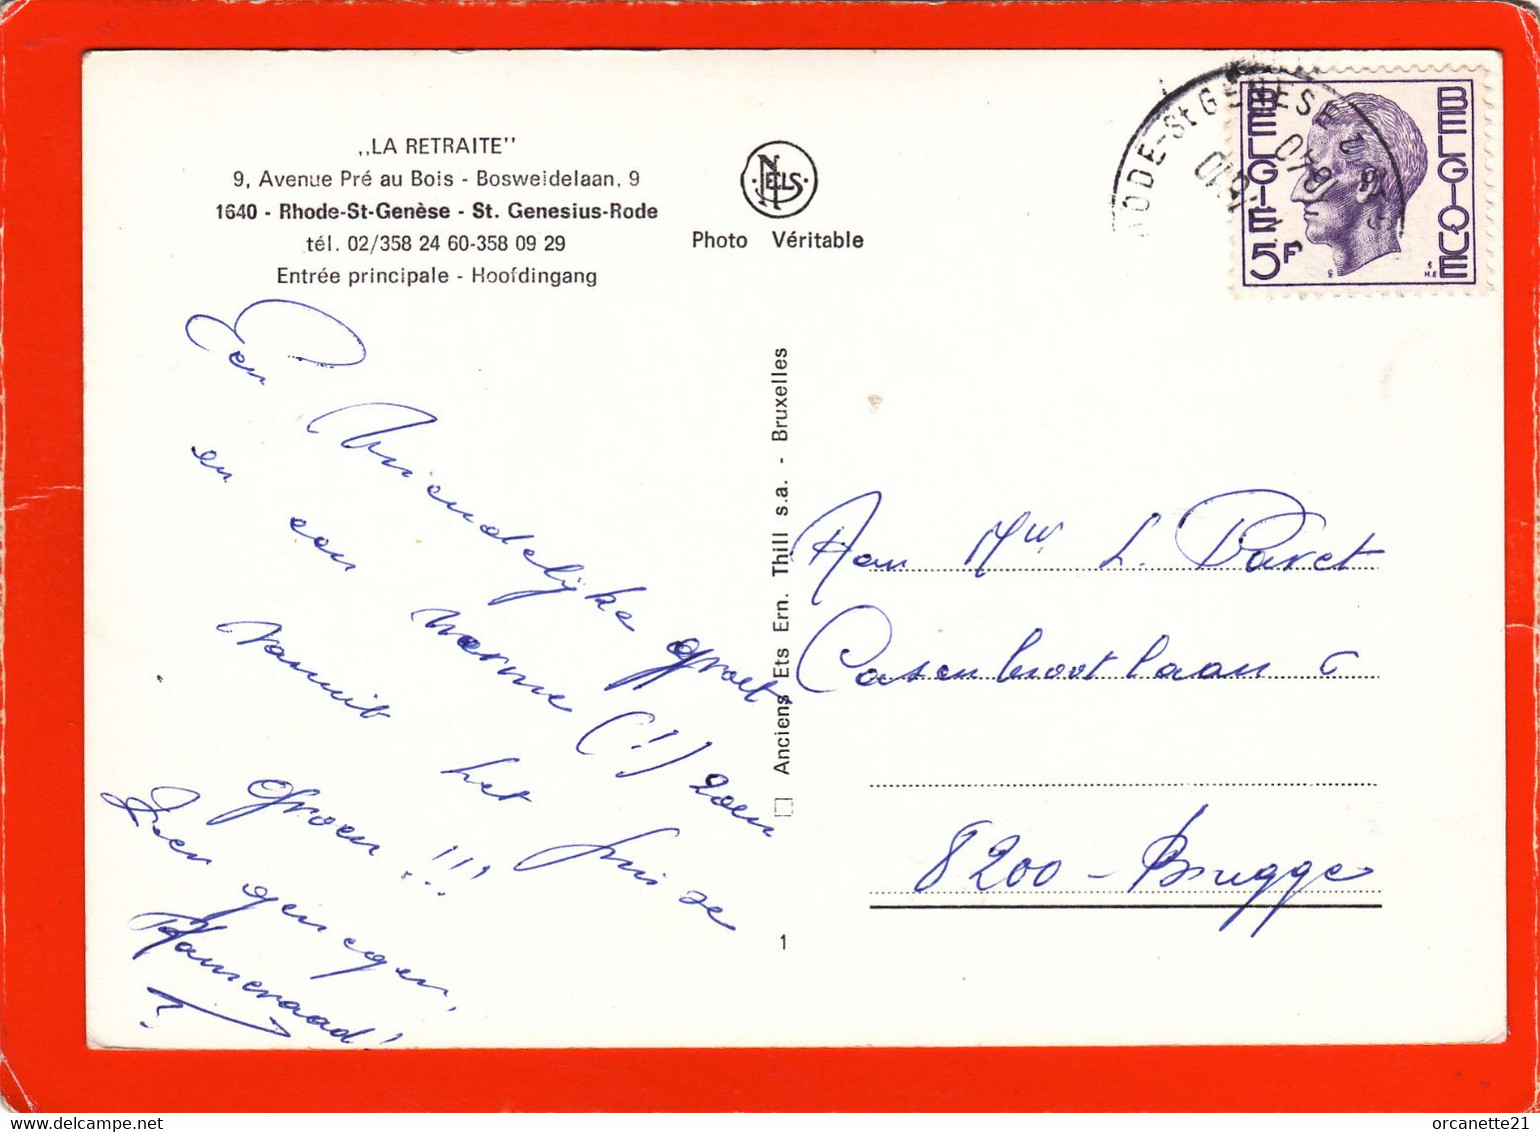 „LA RETRAITE”
9, Avenue Pré au Bois - Bosweidelaan, 9
1640 - Rhode-St-Genèse - St. Genesius-Rode
tél. 02/358 24 60-358 09 29
Entrée principale - Hoofdingang
NELS
Photo Véritable
RODE-St GENESE
BELGIE
BELGIQUE
5F
Een vriendelijke groet,
en een warme (!) zoen
vanuit het
groen !!!
Zeer genegen,
Kameraad!
Anciens Ets Ern. Thill s.a. - Bruxelles
1
Aan Mw. L.
laan
8200 - Brugge
delcampe.net
orcanette21